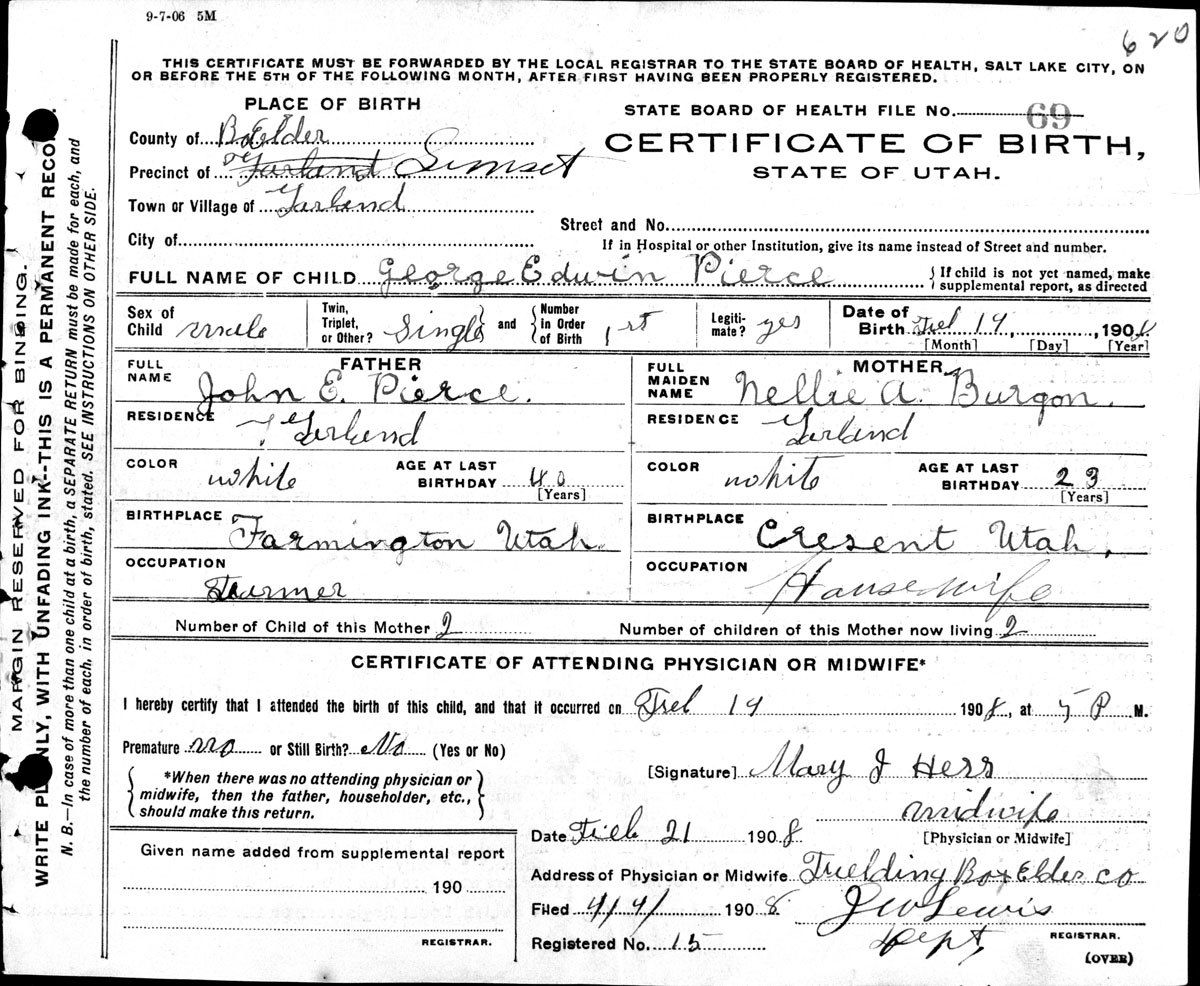 9-7-06 5M
620
THIS CERTIFICATE MUST BE FORWARDED BY THE LOCAL REGISTRAR TO THE STATE BOARD OF HEALTH, SALT LAKE CITY, ON
OR BEFORE THE 5TH OF THE FOLLOWING MONTH, AFTER FIRST HAVING BEEN PROPERLY REGISTERED.
PLACE OF BIRTH
STATE BOARD OF HEALTH FILE No. 69
CERTIFICATE OF BIRTH,
STATE OF UTAH.
County of Box Elder
Precinct of Garland Sunset
Town or Village of Garland
Street and No.
City of
If in Hospital or other Institution, give its name instead of Street and number.
FULL NAME OF CHILD George Edwin Pierce { If child is not yet named, make supplemental report, as directed
Sex of Child male Twin, Triplet, or Other? Single } and { Number in Order of Birth 1st Legiti-mate? yes Date of Birth Feb 19, 1908
[Month] [Day] [Year]
FATHER
MOTHER
FULL NAME John E. Pierce.
FULL MAIDEN NAME Nellie A. Burgon.
RESIDENCE Garland
RESIDENCE Garland
COLOR white AGE AT LAST BIRTHDAY 40 [Years]
COLOR white AGE AT LAST BIRTHDAY 23 [Years]
BIRTHPLACE Farmington Utah.
BIRTHPLACE Cresent Utah.
OCCUPATION Farmer
OCCUPATION Housewife
Number of Child of this Mother 2
Number of children of this Mother now living 2
CERTIFICATE OF ATTENDING PHYSICIAN OR MIDWIFE*
I hereby certify that I attended the birth of this child, and that it occurred on Feb 19 1908, at 5 P M.
Premature no or Still Birth? No (Yes or No)
{ *When there was no attending physician or midwife, then the father, householder, etc., should make this return. }
[Signature] Mary J Hess
midwife
[Physician or Midwife]
Date Feb 21 1908
Address of Physician or Midwife Fielding Box Elder Co
Filed 4/4/ 1908 J W Lewis
Registered No. 15 Dept, REGISTRAR.
(OVER)
Given name added from supplemental report
190
REGISTRAR.
MARGIN RESERVED FOR BINDING.
WRITE PLAINLY, WITH UNFADING INK--THIS IS A PERMANENT RECORD.
N. B.—In case of more than one child at a birth, a SEPARATE RETURN must be made for each, and
the number of each, in order of birth, stated. SEE INSTRUCTIONS ON OTHER SIDE.